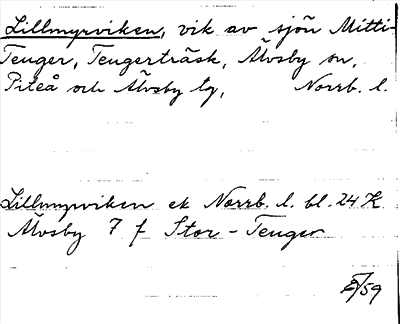 Lillmyrviken, vik av sjön Mitti-
Teuger, Teugerträsk, Älvsby sn,
Piteå och Älvsby tg, Norrb. l.
Lillmyrviken ek Norrb. l. bl. 24 K
Älvsby 7 f Stor-Teuger
/59